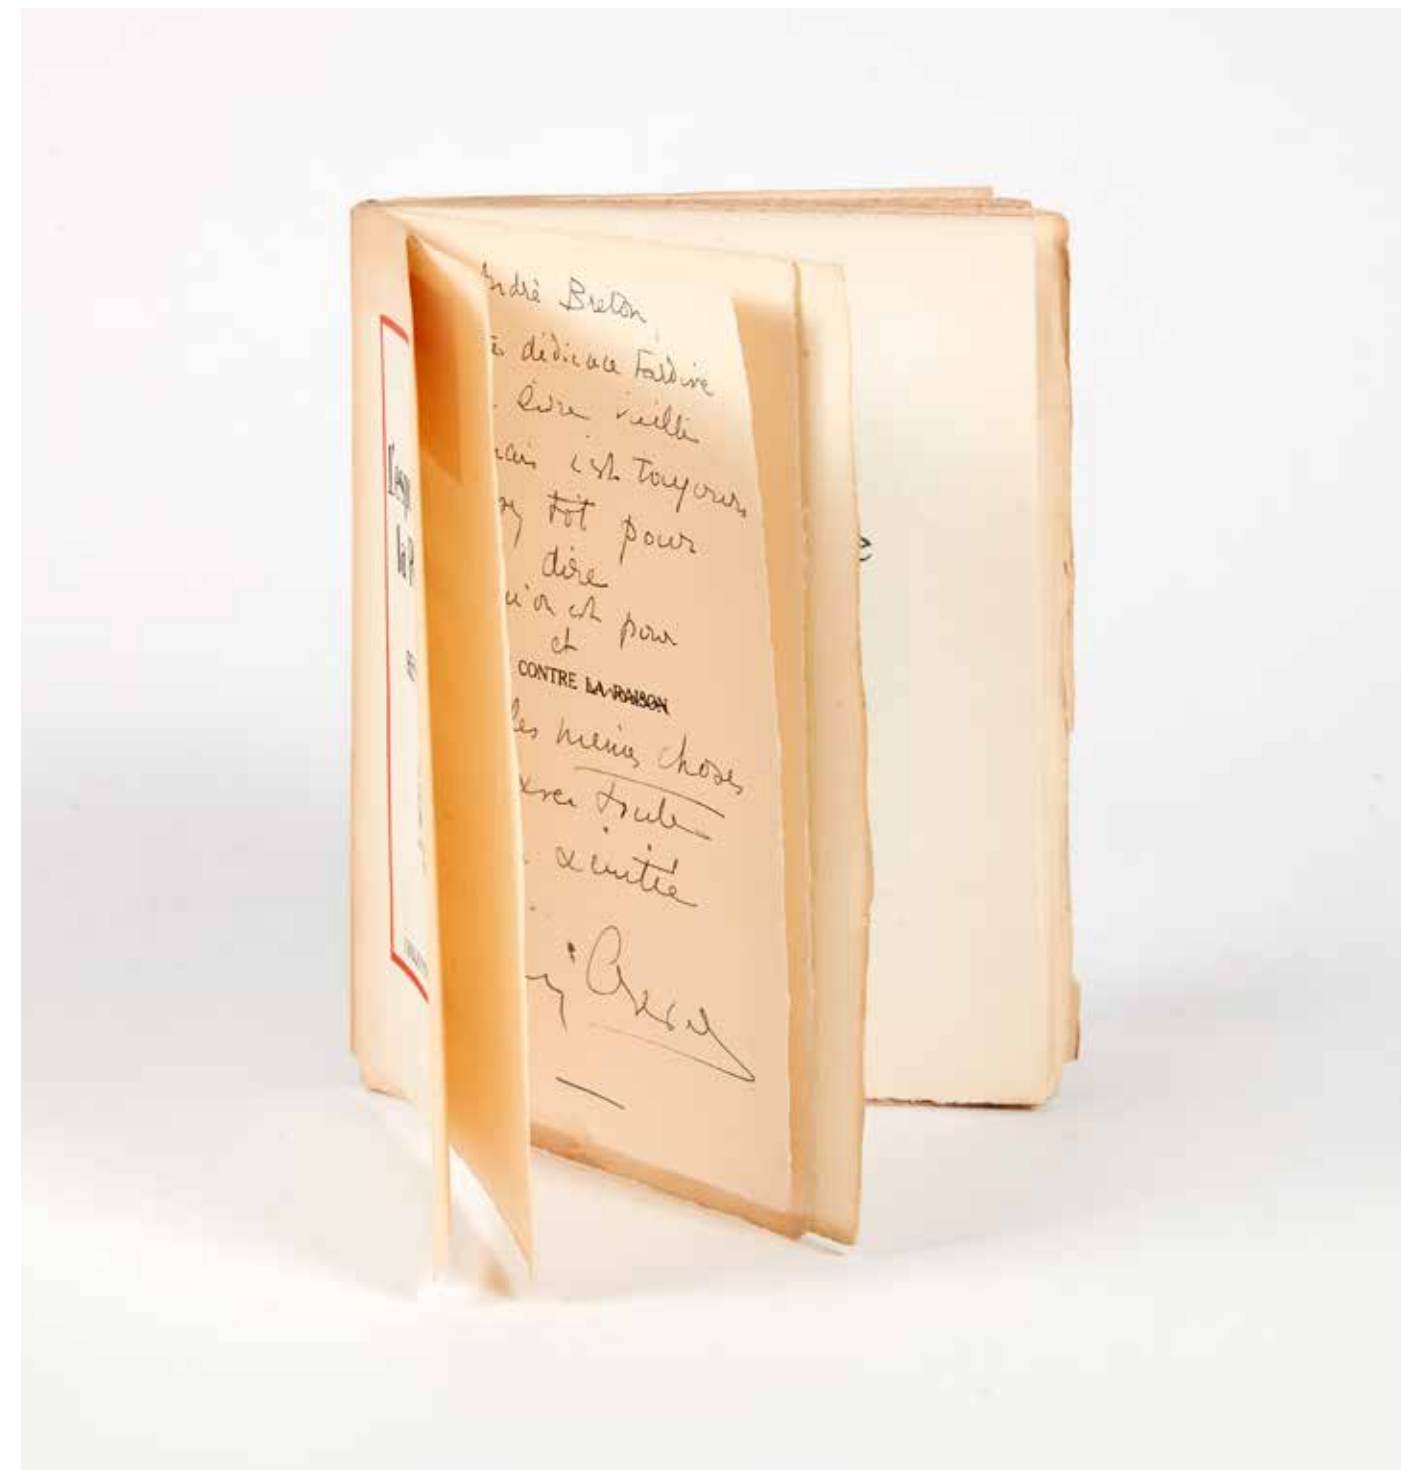 L'esp
la R
ndré Breton,
dédicace tardive
livre vieilli
mais est toujours
tôt pour
dire
u'on est pour
et
CONTRE LA RAISON
les mêmes choses
avec toute
amitié
Crevel
e